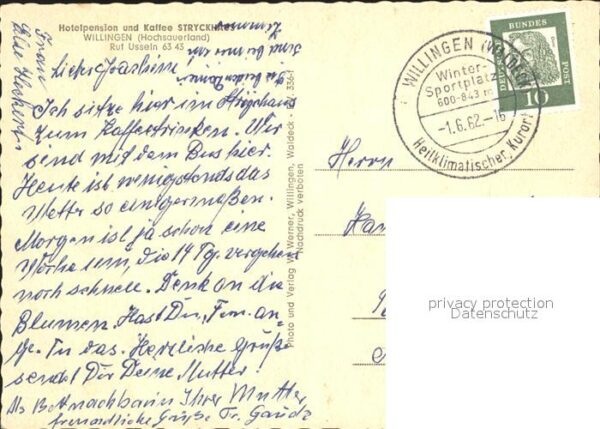 Hotelpension und Kaffee STRYCKHAUS
WILLINGEN (Hochsauerland)
Ruf Usseln 63 43
Frau
Lieber Joachim!
Ich sitze hier im Stryckhaus
zum Kaffeetrinken. Wir
sind mit dem Bus hier.
Heute ist wenigstens das
Wetter so einigermaßen.
Morgen ist ja schon eine
Woche um, die 14 Tg. vergehen
noch schnell. Denk an die
Blumen. Hast Du,
Tu das. Herzliche Grüße
sendet Dir Deine Mutter!
Als Bettnachbarin Ihrer Mutter
freundliche Grüße Fr.
Photo und Verlag W. Werner, Willingen, Waldeck
Nachdruck verboten
WILLINGEN (WALDECK)
Winter-
Sportplatz
600-843 m
-1.6.62.-16
Heilklimatischer Kurort
DEUTSCHE BUNDESPOST
10
Herrn
privacy protection
Datenschutz